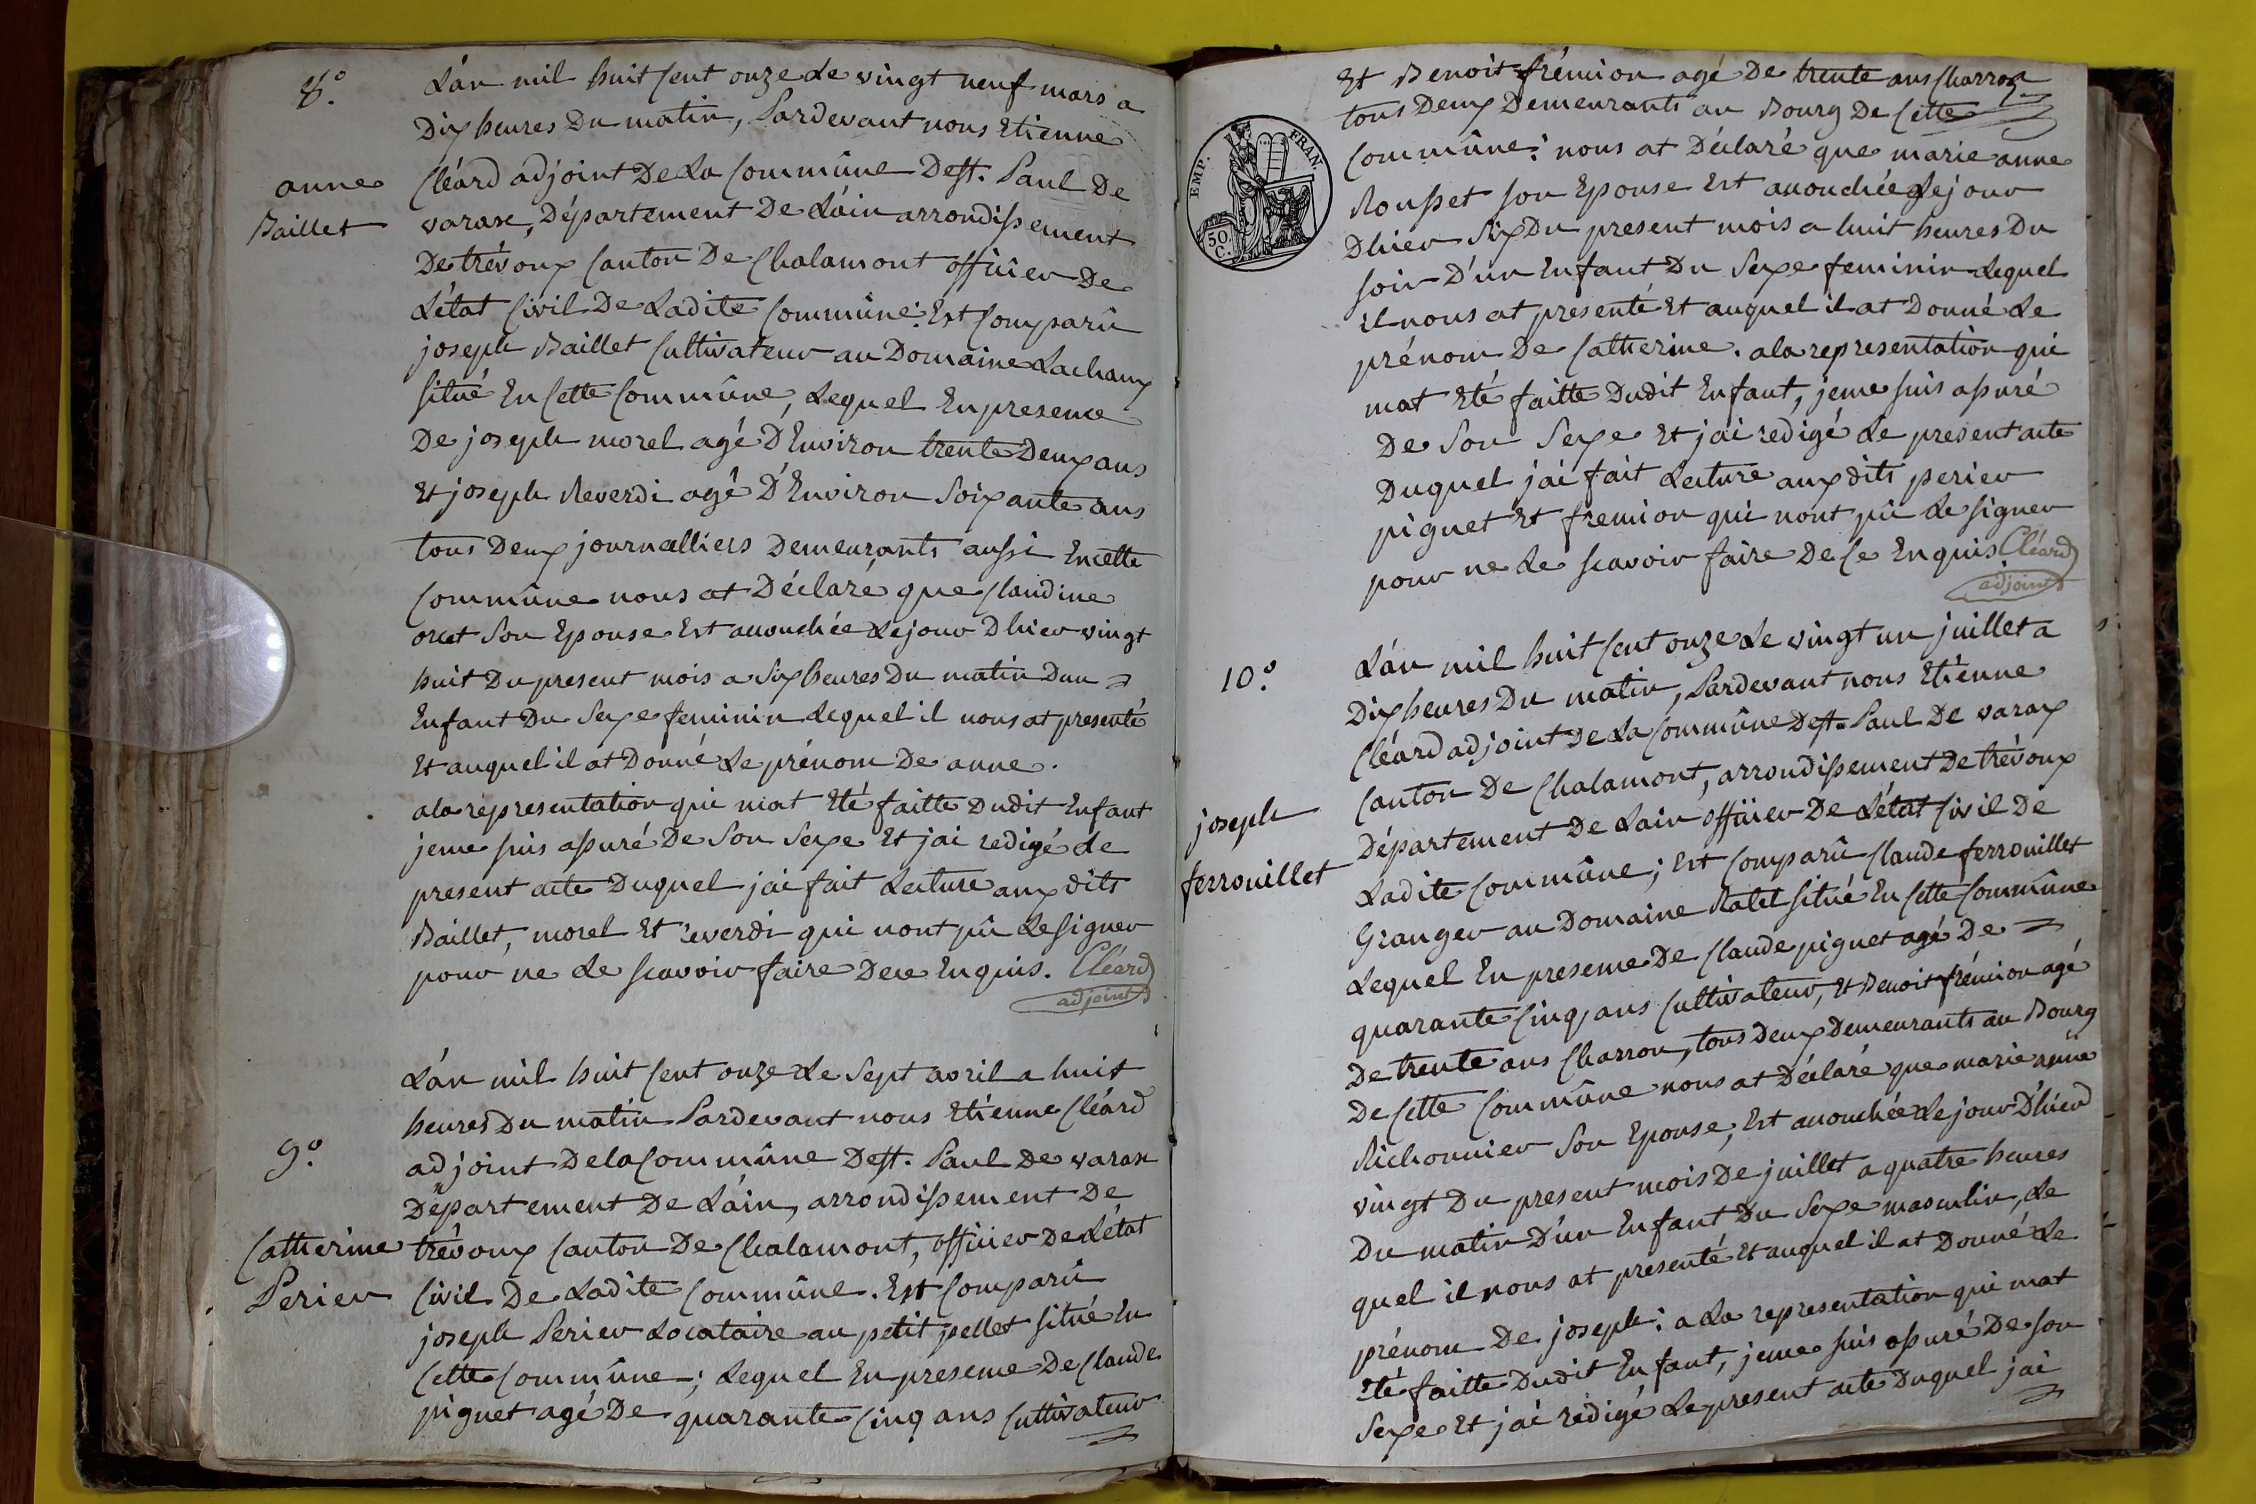 8.°
L'án mil huit Cent onze Le vingt neuf mars a
Dix heures Du matin, Pardevant nous Etienne
Cléard adjoint De La Commûne De St. Paul De
anne
Baillet
varax, Département De L'áin arrondissement
De trévoux Canton De Chalamont officier De
L'état Civil De Ladite Commûne. Est Comparû
joseph Baillet Cultivateur au Domaine Lachaux
situé En Cette Commûne, Lequel En presence
De joseph morel agé D'Environ trente Deux ans
Et joseph Reverdi agé D'Environ Soixante ans
tous Deux journalliers Demeurants aussi En cette
Commûne nous at Déclaré que Claudine
Son Epouse Est accouchée Le jour Dhier vingt
huit Du present mois a Six heures Du matin Dun
Enfant Du Sexe feminin Lequel il nous at presenté
Et auquel il at Donné Le prénom De anne.
ala representation qui mat Eté faitte Dudit Enfant
jeme suis assuré De Son Sexe Et jai redigé Le
present acte Duquel jai fait Lecture aux dits
Baillet, morel Et reverdi qui nont pû Le signer
pour ne Le scavoir faire De ce Enquis. Cléard
adjoint
L'án mil huit Cent onze Le Sept avril a huit
heures Du matin Pardevant nous Etienne Cléard
9.°
adjoint De la Commûne De St. Paul De varax
Département De L'áin, arrondissement De
Catherine
Perier
trévoux Canton De Chalamont, officier De L'état
Civil De Ladite Commûne. Est Comparû
joseph Perier Locataire au petit pellet situé En
Cette Commûne; Lequel En presence De Claude
piguet agé De quarante Cinq ans Cultivateur
Et Benoit frémion agé De trente ans Charron
tous Deux Demeurants au Bourg De Cette
EMP. FRAN.
50 C.
Commûne; nous at Déclaré que marie anne
Rousset son Epouse Est accouchée Le jour
Dhier Six Du present mois a huit heures Du
soir D'un Enfant Du Sexe feminin Lequel
il nous at presenté Et auquel il at Donné Le
prénom De Catherine. ala representation qui
mat Eté faitte Dudit Enfant, jeme suis assuré
De Son Sexe Et jai redigé Le present acte
Duquel jai fait Lecture aux dits perier
piguet Et fremion qui nont pû Le signer
pour ne Le scavoir faire De Ce Enquis Cléard
adjoint
10.°
L'án mil huit Cent onze Le vingt un juillet a
Dix heures Du matin, Pardevant nous Etienne
Cléard adjoint De La Commûne De St. Paul De varax
Canton De Chalamont, arrondissement De trévoux
joseph
ferrouillet
Département De Lain officier De L'état Civil De
Ladite Commûne; Est Comparû Claude ferrouillet
Granger au Domaine Ratel situé En Cette Commûne
Lequel En presence De Claude piguet agé De
quarante Cinq ans Cultivateur, Et Benoit frémion agé
De trente ans Charron, tous Deux Demeurants au Bourg
De Cette Commûne nous at Déclaré que marie
Richonnier Son Epouse, Est accouchée Le jour D'hier
vingt Du present mois De juillet a quatre heures
Du matin D'un Enfant Du Sexe masculin, Le
quel il nous at presenté Et auquel il at Donné Le
prénom De joseph; a La representation qui mat
Eté faitte Dudit Enfant, jeme suis assuré De son
Sexe Et jai redigé Le present acte Duquel jai